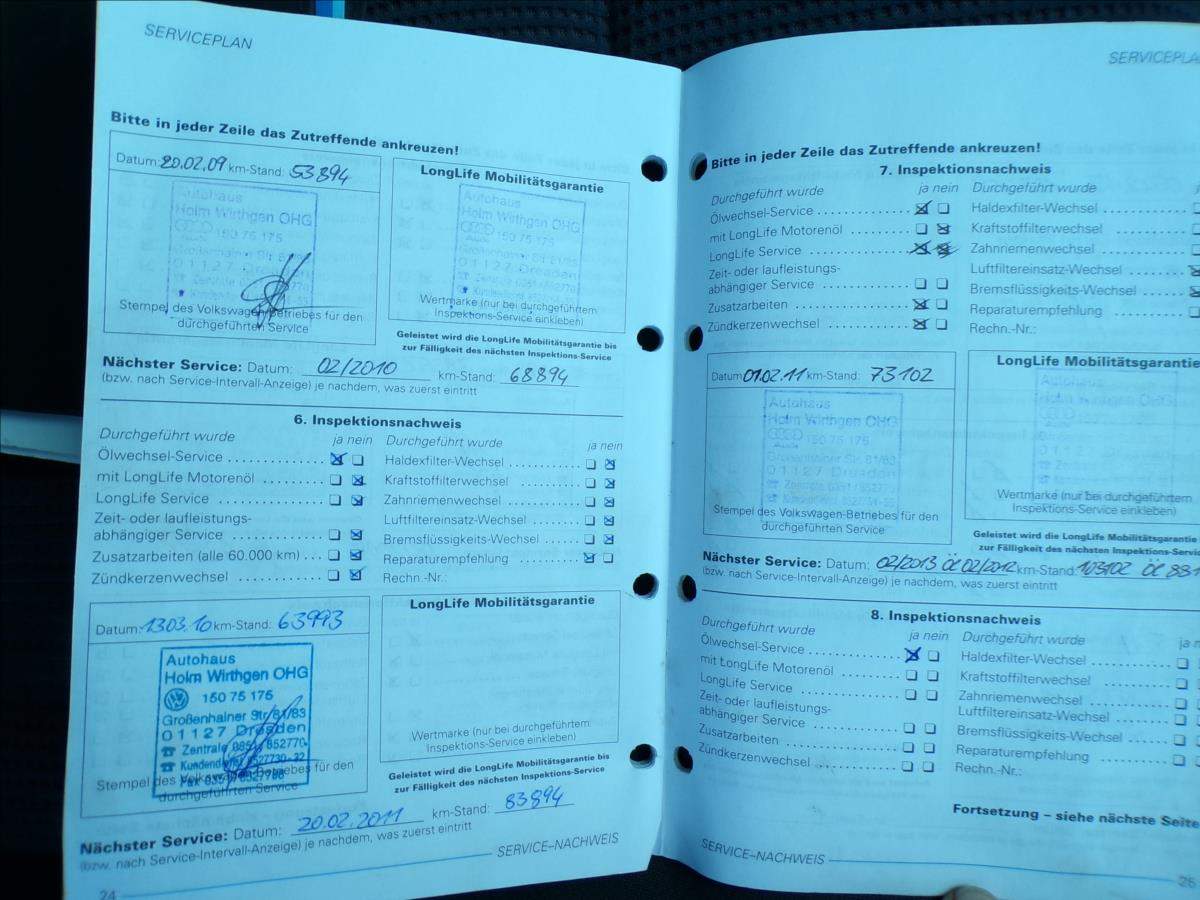 SERVICEPLAN
Bitte in jeder Zeile das Zutreffende ankreuzen!
Datum: 20.02.09 km-Stand: 53894
Autohaus
Holm Wirthgen OHG
150 75 175
01127 Dresden
Stempel des Volkswagen-Betriebes für den
durchgeführten Service
LongLife Mobilitätsgarantie
Autohaus
Holm Wirthgen OHG
150 75 175
01127 Dresden
Wertmarke (nur bei durchgeführtem
Inspektions-Service einkleben)
Geleistet wird die LongLife Mobilitätsgarantie bis
zur Fälligkeit des nächsten Inspektions-Service
Nächster Service: Datum: 02/2010 km-Stand: 68894
(bzw. nach Service-Intervall-Anzeige) je nachdem, was zuerst eintritt
6. Inspektionsnachweis
Durchgeführt wurde ja nein
Ölwechsel-Service
mit LongLife Motorenöl
LongLife Service
Zeit- oder laufleistungs-
abhängiger Service
Zusatzarbeiten (alle 60.000 km)
Zündkerzenwechsel
Durchgeführt wurde ja nein
Haldexfilter-Wechsel
Kraftstoffilterwechsel
Zahnriemenwechsel
Luftfiltereinsatz-Wechsel
Bremsflüssigkeits-Wechsel
Reparaturempfehlung
Rechn.-Nr.:
Datum: 13.03.10 km-Stand: 63993
Autohaus
Holm Wirthgen OHG
150 75 175
Großenhainer Str. 81/83
01127 Dresden
Zentrale 0351 / 852770
Kundendienst 8527730-32
Stempel des Volkswagen-Betriebes für den
durchgeführten Service
LongLife Mobilitätsgarantie
Wertmarke (nur bei durchgeführtem
Inspektions-Service einkleben)
Geleistet wird die LongLife Mobilitätsgarantie bis
zur Fälligkeit des nächsten Inspektions-Service
Nächster Service: Datum: 20.02.2011 km-Stand: 83894
(bzw. nach Service-Intervall-Anzeige) je nachdem, was zuerst eintritt
SERVICE–NACHWEIS
24
SERVICEPLA
Bitte in jeder Zeile das Zutreffende ankreuzen!
7. Inspektionsnachweis
Durchgeführt wurde ja nein
Ölwechsel-Service
mit LongLife Motorenöl
LongLife Service
Zeit- oder laufleistungs-
abhängiger Service
Zusatzarbeiten
Zündkerzenwechsel
Durchgeführt wurde
Haldexfilter-Wechsel
Kraftstoffilterwechsel
Zahnriemenwechsel
Luftfiltereinsatz-Wechsel
Bremsflüssigkeits-Wechsel
Reparaturempfehlung
Rechn.-Nr.:
Datum: 01.02.11 km-Stand: 73102
Autohaus
Holm Wirthgen OHG
150 75 175
Großenhainer Str. 81/83
01127 Dresden
Stempel des Volkswagen-Betriebes für den
durchgeführten Service
LongLife Mobilitätsgarantie
Wertmarke (nur bei durchgeführtem
Inspektions-Service einkleben)
Geleistet wird die LongLife Mobilitätsgarantie
zur Fälligkeit des nächsten Inspektions-Service
Nächster Service: Datum: 02/2013 Öl 02/2012 km-Stand: 103102 Öl 881
(bzw. nach Service-Intervall-Anzeige) je nachdem, was zuerst eintritt
8. Inspektionsnachweis
Durchgeführt wurde ja nein
Ölwechsel-Service
mit LongLife Motorenöl
LongLife Service
Zeit- oder laufleistungs-
abhängiger Service
Zusatzarbeiten
Zündkerzenwechsel
Durchgeführt wurde ja n
Haldexfilter-Wechsel
Kraftstoffilterwechsel
Zahnriemenwechsel
Luftfiltereinsatz-Wechsel
Bremsflüssigkeits-Wechsel
Reparaturempfehlung
Rechn.-Nr.:
Fortsetzung – siehe nächste Seite
SERVICE–NACHWEIS